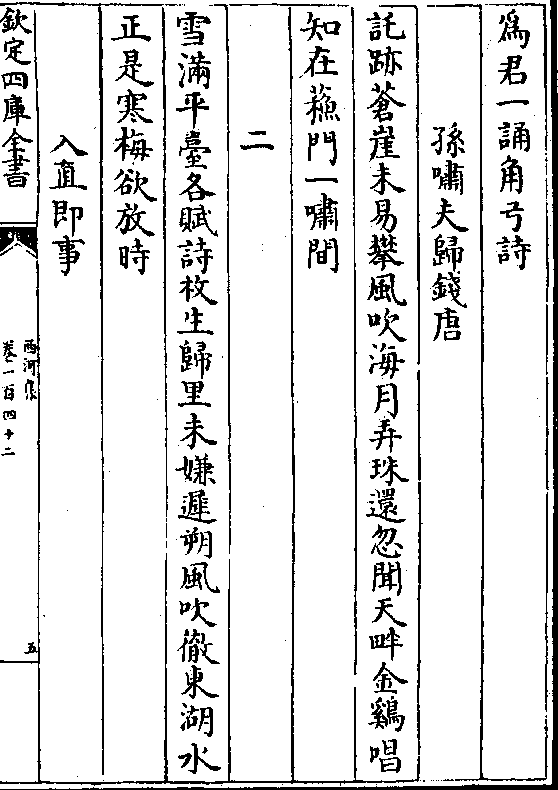 爲君一誦角弓詩
孫嘯夫歸錢唐
託跡蒼崖未易攀風吹海月弄珠還忽聞天畔金鷄唱
知在蘓門一嘯間
二
雪滿平臺各賦詩枚生歸里未嫌遲朔風吹徹東湖水
正是寒梅欲放時
入直即事
欽定四庫全書
西河集
卷一百四十二
五